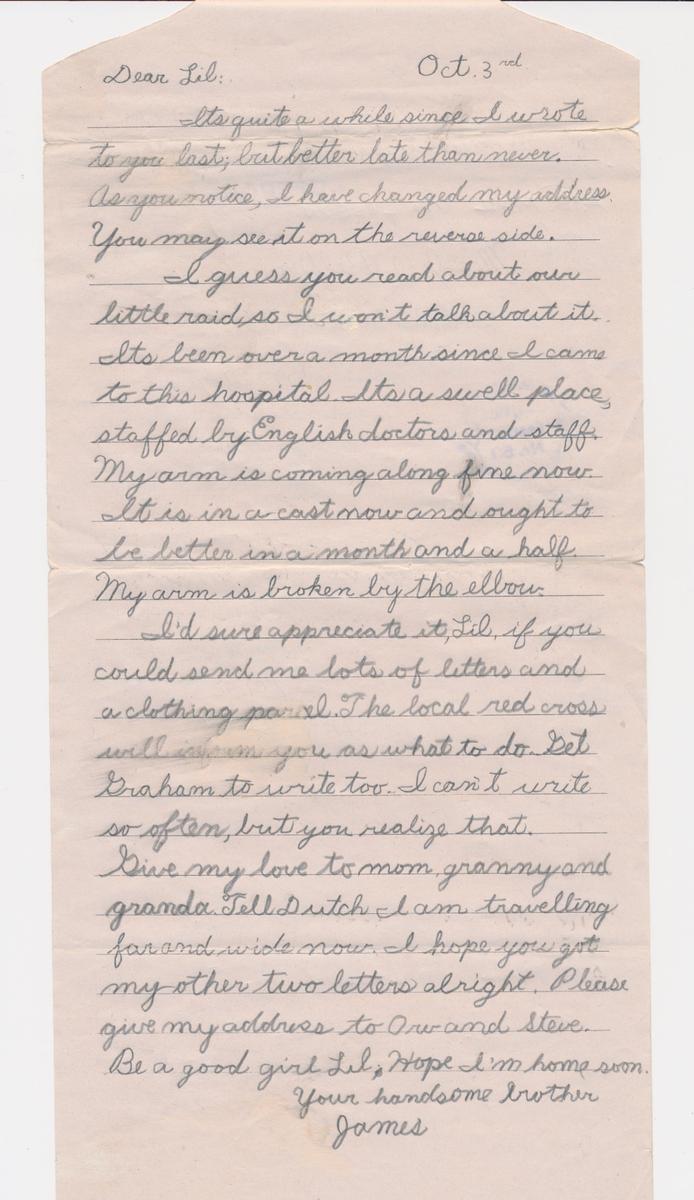 Dear Lil: Oct. 3rd.
Its quite a while since I wrote
to you last; but better late than never.
As you notice, I have changed my address.
You may see it on the reverse side.
I guess you read about our
little raid, so I won't talk about it.
Its been over a month since I came
to this hospital. Its a swell place,
staffed by English doctors and staff.
My arm is coming along fine now.
It is in a cast now and ought to
be better in a month and a half.
My arm is broken by the elbow.
I'd sure appreciate it, Lil, if you
could send me lots of letters and
a clothing parcel. The local red cross
will inform you as what to do. Get
Graham to write too. I can't write
so often, but you realize that.
Give my love to mom, granny and
granda. Tell Dutch I am travelling
far and wide now. I hope you got
my other two letters alright. Please
give my address to Orv and Steve.
Be a good girl Lil, Hope I'm home soon.
Your handsome brother
James